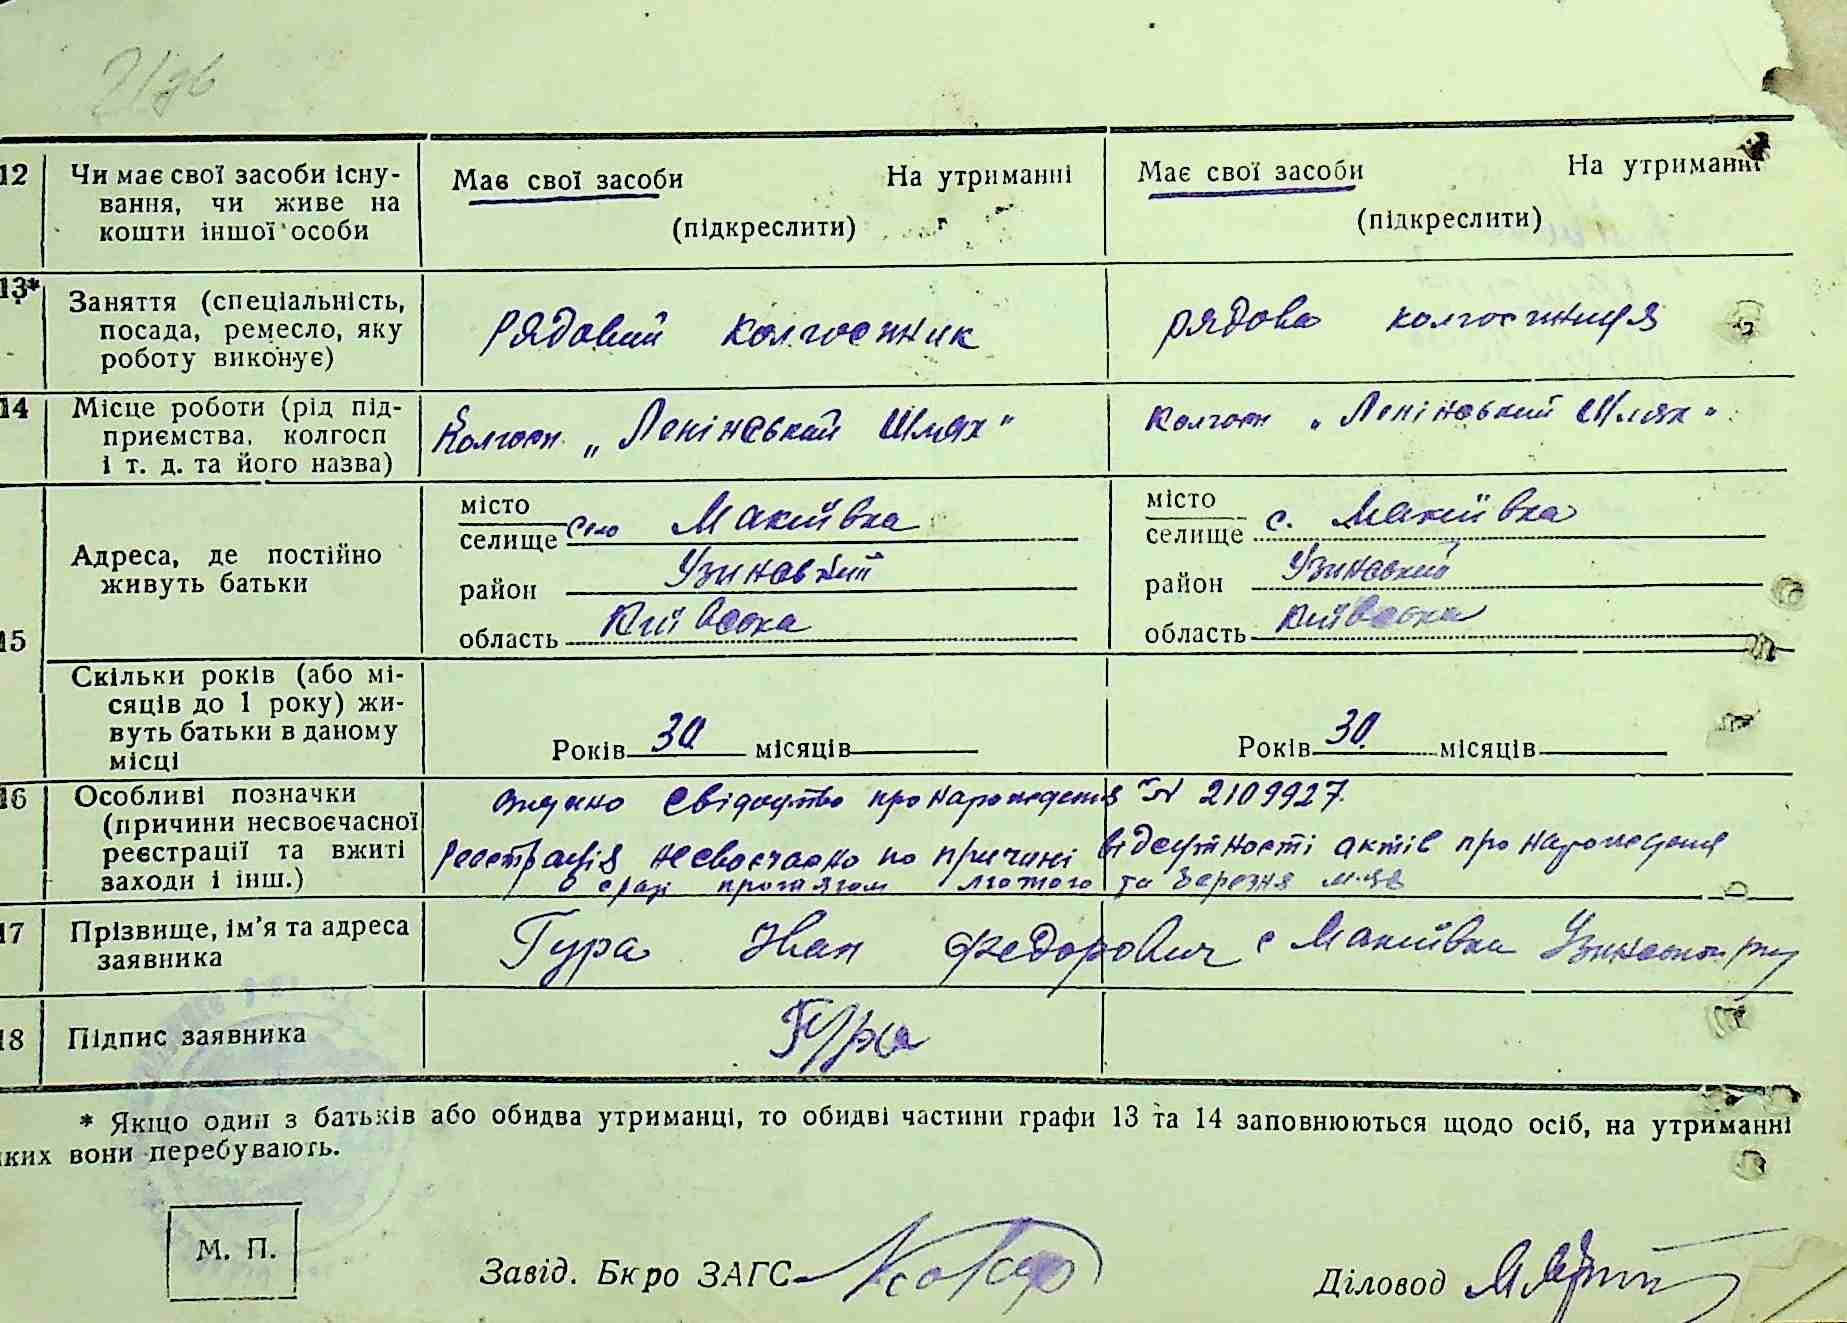 12 Чи має свої засоби існу-
вання, чи живе на
кошти іншої особи
Має свої засоби На утриманні
(підкреслити)
Має свої засоби На утриманні
(підкреслити)
13* Заняття (спеціальність,
посада, ремесло, яку
роботу виконує)
Рядовий колгоспник
рядова колгоспниця
14 Місце роботи (рід під-
приємства, колгосп
і т. д. та його назва)
Колгосп „Ленінський Шлях"
Колгосп „Ленінський Шлях"
15 Адреса, де постійно
живуть батьки
місто
селище село Макіївка
район Узинський
область Київська
місто
селище с. Макіївка
район Узинський
область Київська
Скільки років (або мі-
сяців до 1 року) жи-
вуть батьки в даному
місці
Років 30 місяців
Років 30 місяців
16 Особливі позначки
(причини несвоєчасної
реєстрації та вжиті
заходи і інш.)
видано свідоцтво про народження № 2109927.
Реєстрація несвоєчасно по причині відсутності актів про народження
в сраді протягом лютого та березня м-ців
17 Прізвище, ім'я та адреса
заявника
Гура Іван Федорович с Макіївка Узинського р-ну
18 Підпис заявника
Гура
* Якщо один з батьків або обидва утриманці, то обидві частини графи 13 та 14 заповнюються щодо осіб, на утриманні
яких вони перебувають.
М. П.
Завід. Бюро ЗАГС
Діловод